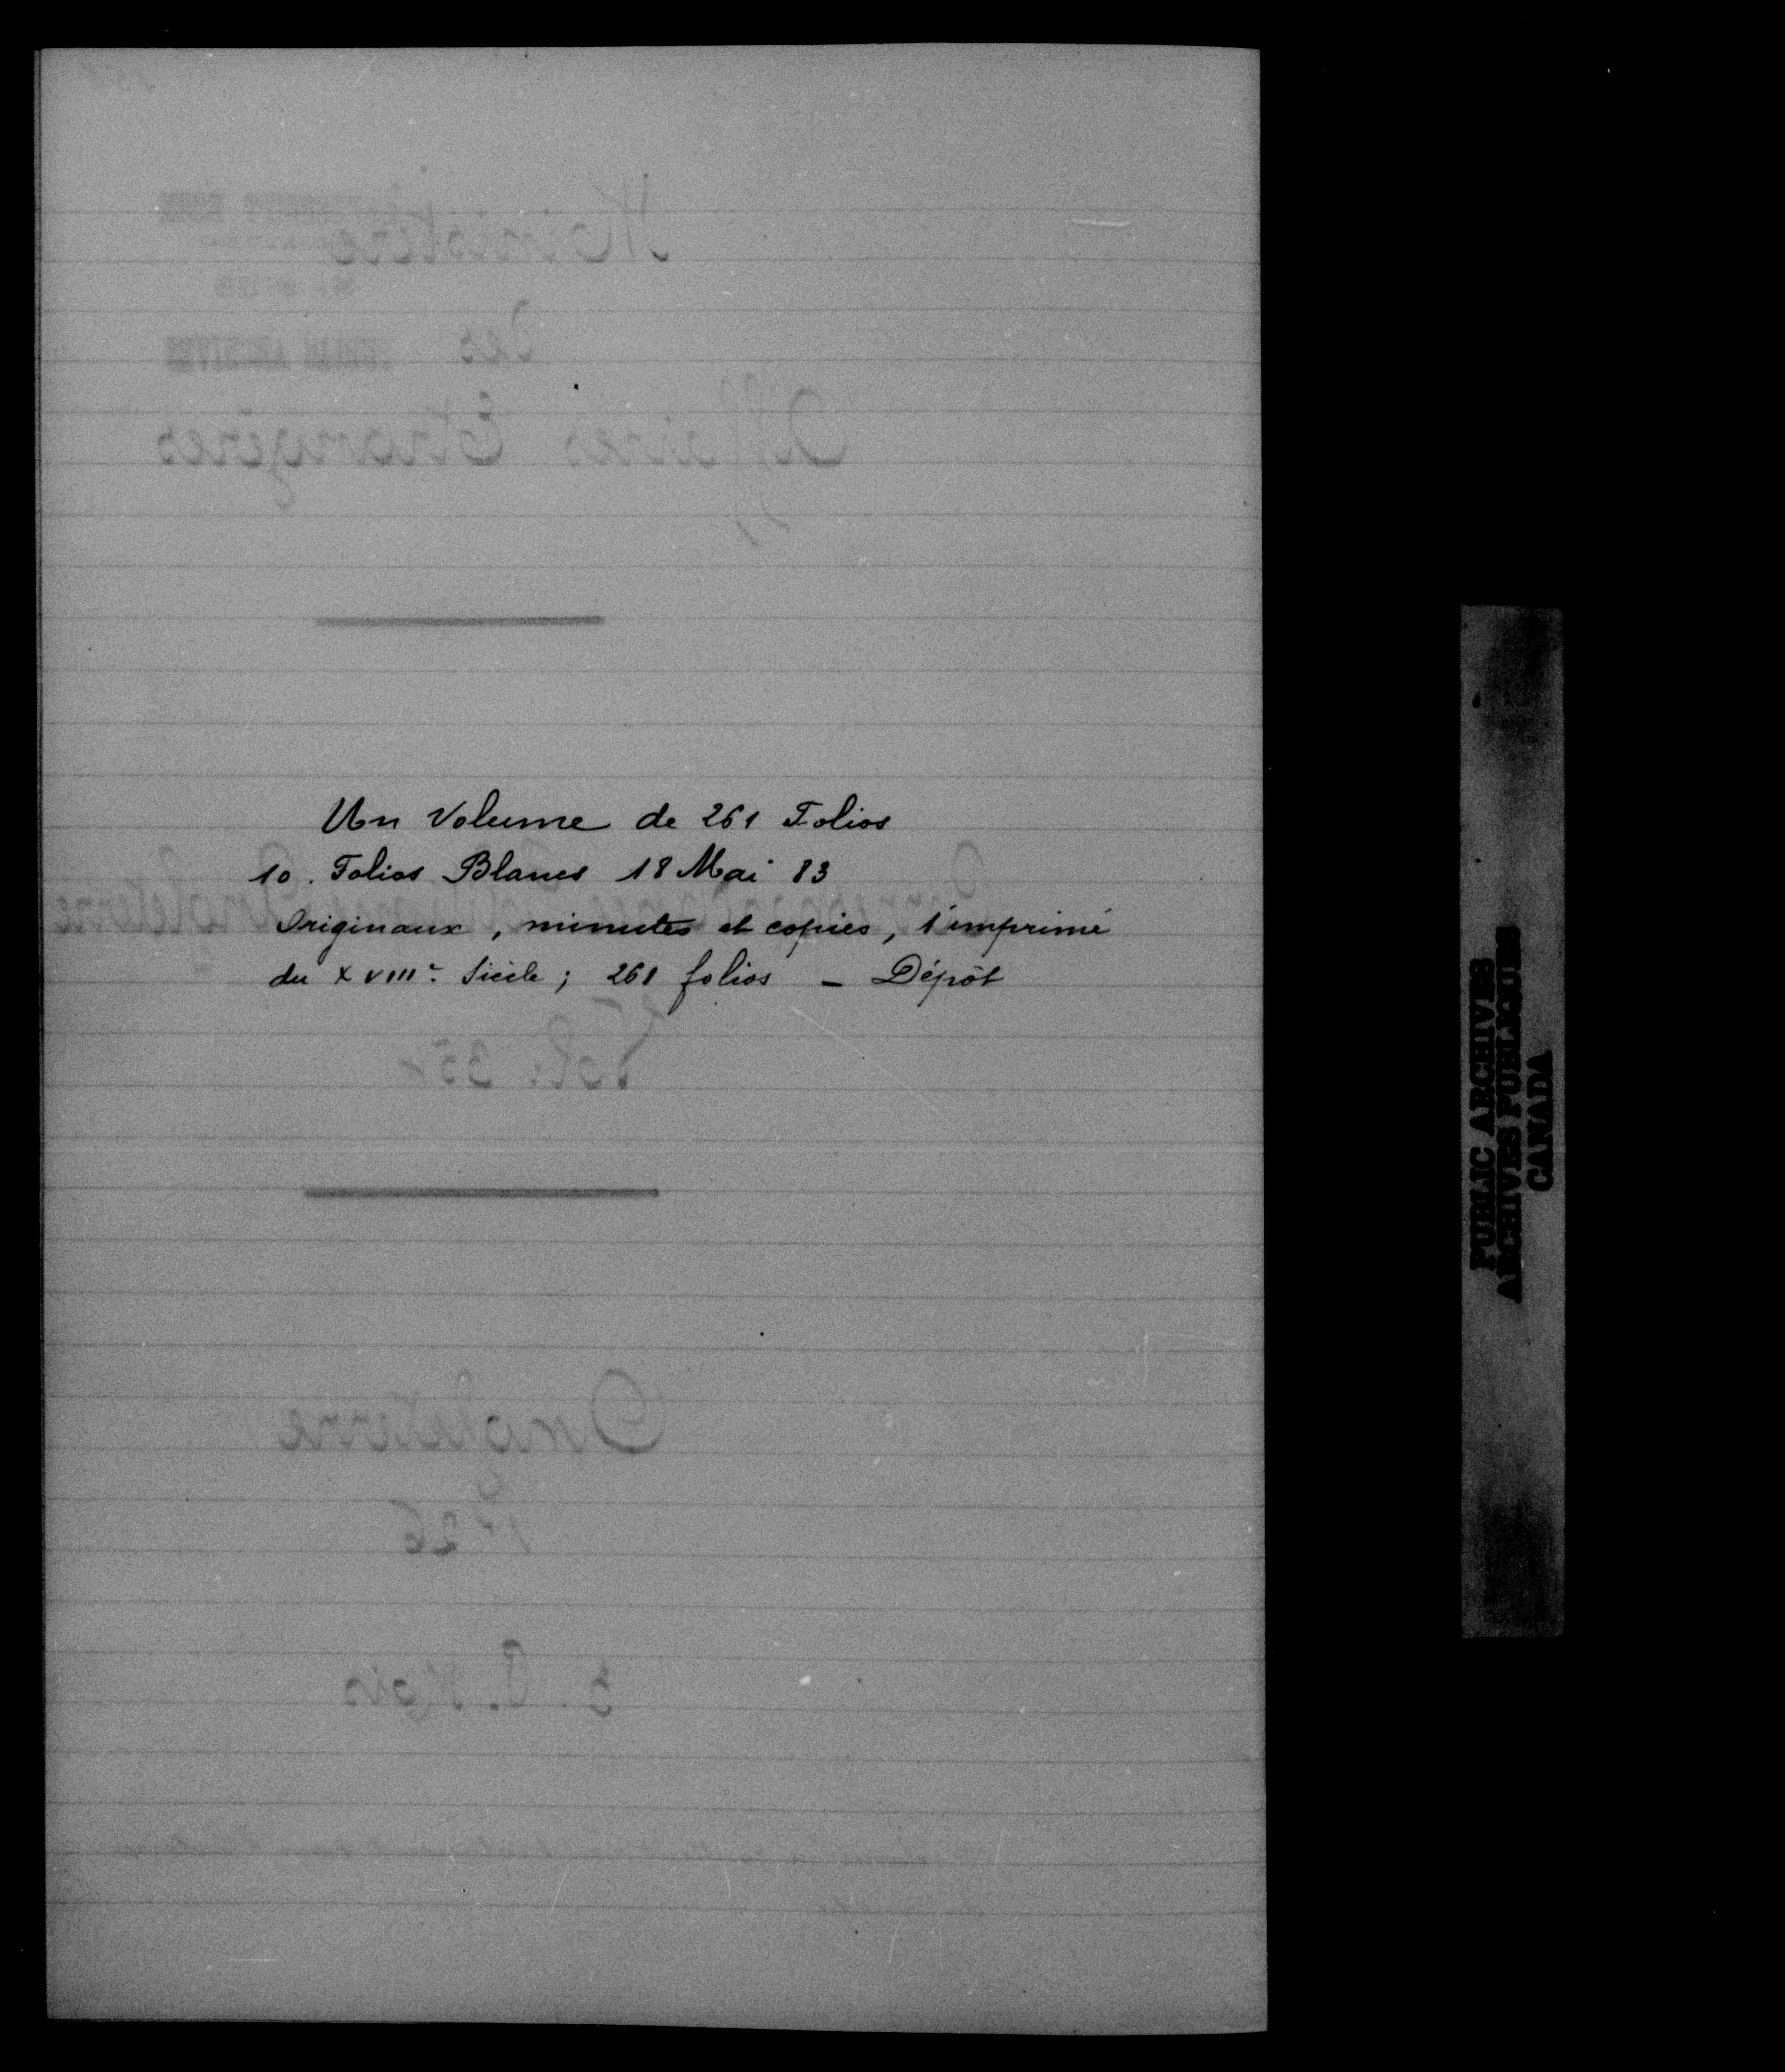 Un Volume de 261 Folios
10. Folios Blancs 18 Mai 83
Originaux, minutes et copies, 1 imprimé
du XVIIIe Siècle; 261 folios — Dépôt
PUBLIC ARCHIVES
ARCHIVES PUBLIQUES
CANADA